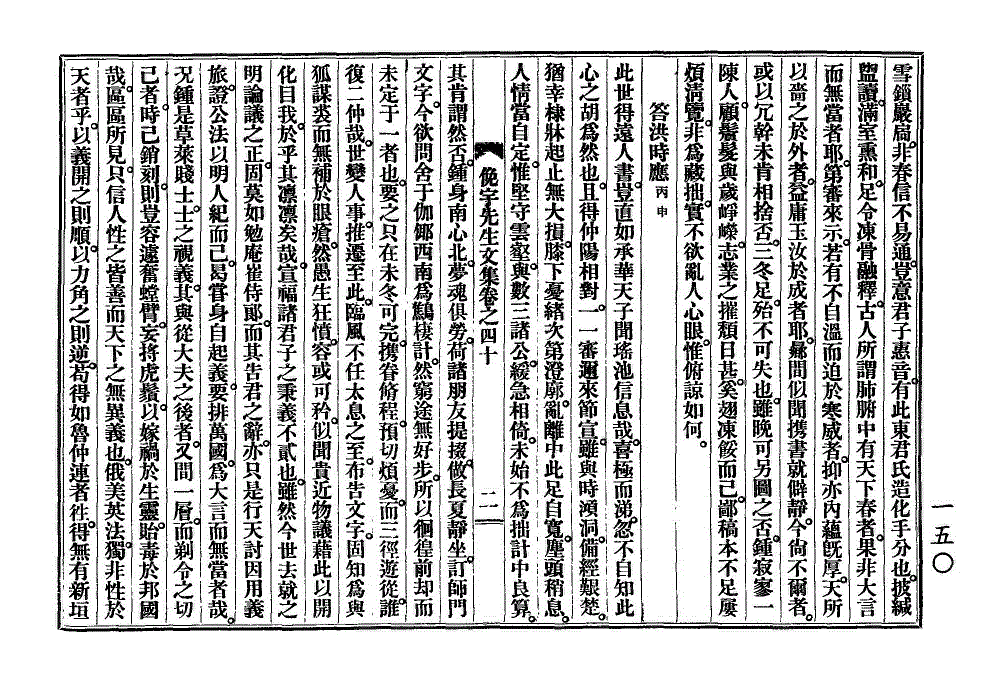 雪鎖巖扃。非春信不易通。豈意君子惠音。有此東君氏造化手分也。披緘
盥讀。滿室熏和。足令凍骨融釋。古人所謂肺腑中有天下春者。果非大言
而無當者耶。第審來示。若有不自溫而迫於寒威者。抑亦內蘊旣厚。天所
以嗇之於外者。益庸玉汝於成者耶。鄕間似聞携書就僻靜。今尙不爾者。
或以冗幹未肯相捨否。三冬足。殆不可失也。雖晩可另圖之否。鍾寂寥一
陳人。顧鬢髮與歲崢嶸。志業之摧頹日甚。奚翅凍餒而已。鄙稿本不足屢
煩淸覽。非爲藏拙。實不欲亂人心眼。惟俯諒如何。
答洪時應 丙申
此世得遠人書。豈直如承華天子聞瑤池信息哉。喜極而涕。忽不自知此
心之胡爲然也。且得仲陽相對。一一審邇來節宣。雖與時澒洞。備經艱楚。
猶幸棣牀起止無大損。膝下憂緖次第澄廓。亂離中此足自寬。塵頭稍息。
人情當自定。惟堅守雲壑。與數三諸公。緩急相倚。未始不爲拙計中良算。
俛宇先生文集卷之四十 二
其肯謂然否。鍾身南心北。夢魂俱勞。荷諸朋友提掇。做長夏靜坐。訂師門
文字。今欲問舍于伽倻西南。爲鷦棲計。然窮途無好步。所以徊徨前却而
未定于一者也。要之只在未冬可完。携眷脩程。預切煩憂。而三徑遊從。誰
復二仲哉。世變人事。推遷至此。臨風不任太息之至。布告文字。固知爲與
狐謀裘而無補於眼瘡。然愚生狂憤。容或可矜。似聞貴近物議藉此以開
化目我。於乎其凛凛矣哉。宣福諸君子之秉義不貳也。雖然今世去就之
明。論議之正。固莫如勉庵崔侍郞。而其告君之辭。亦只是行天討因用義
旅。證公法以明人紀而已。曷嘗身自起義。要排萬國。爲大言而無當者哉。
况鍾是草萊賤士。士之視義。其與從大夫之後者。又間一層。而剃令之切
己者。時已銷刻。則豈容遽奮螳臂。妄捋虎鬚。以嫁禍於生靈。貽毒於邦國
哉。區區所見。只信人性之皆善而天下之無異義也。俄美英法。獨非性於
天者乎。以義開之則順。以力角之則逆。苟得如魯仲連者徃。得無有新垣
一五〇